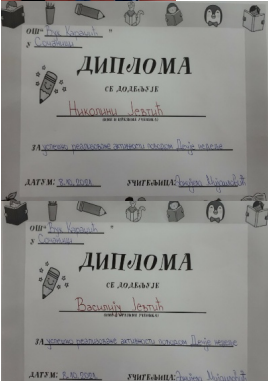 ОШ "Вук Караџић"
у Сочаници
ДИПЛОМА
СЕ ДОДЕЉУЈЕ
Николини Јевтић
(ИМЕ И ПРЕЗИМЕ УЧЕНИКА)
ЗА успешно реализоване активности поводом Дечје недеље
ДАТУМ: 8.10.2021. УЧИТЕЉИЦА:
ОШ "Вук Караџић"
у Сочаници
ДИПЛОМА
СЕ ДОДЕЉУЈЕ
Василији Јевтић
(ИМЕ И ПРЕЗИМЕ УЧЕНИКА)
ЗА успешно реализоване активности поводом Дечје недеље
ДАТУМ: 8.10.2021. УЧИТЕЉИЦА: